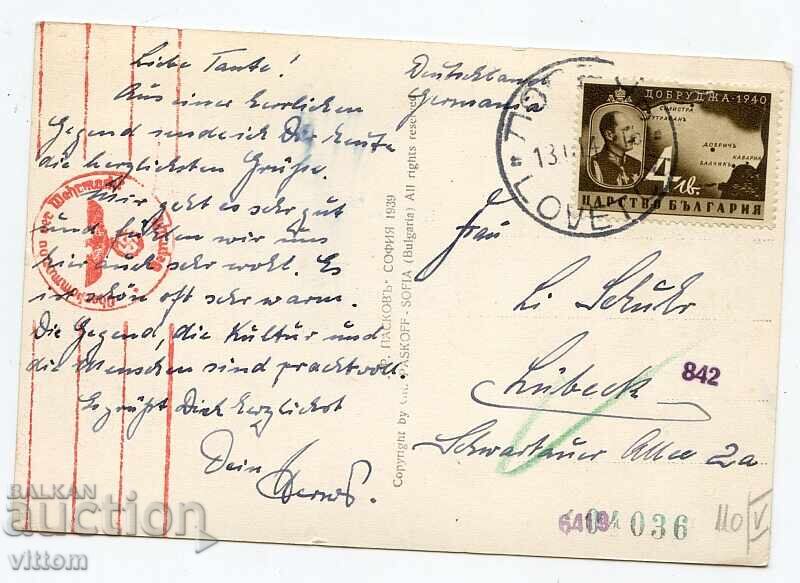 Liebe Tante!
Aus einer herrlichen
Gegend sende ich Dir heute
die herzlichsten Grüße.
Mir geht es sehr gut
und fühlen wir uns
hier auch sehr wohl. Es
ist schön oft sehr warm.
Die Gegend, die Kultur und
die Menschen sind prachtvoll.
Es grüßt Dich herzlichst
Dein
Oberkommando der Wehrmacht
ГР. ПАСКОВЪ СОФИЯ 1939
Copyright by GR. PASKOFF - SOFIA (Bulgaria) All rights reserved
Deutschland
Germania
LOVETCH
13
ДОБРУДЖА·1940
СИЛИСТРА
ТУТРАКАНЪ
ДОБРИЧЪ
БАЛЧИКЪ
КАВАРНА
4 лв.
ЦАРСТВО БЪЛГАРИЯ
Frau
Li Schuhr
Lübeck
842
Schwartauer Allee 2a
036
110 V
BALKAN
auction
vittom